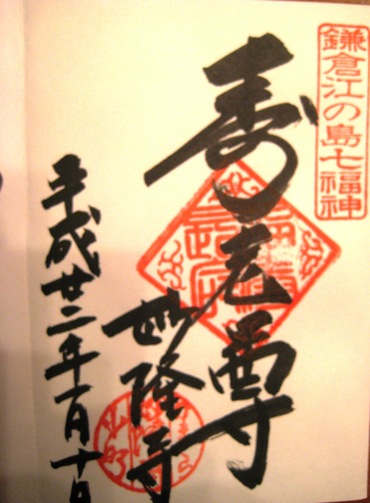 鎌倉江の島七福神
寿老尊
妙隆寺
平成廿二年一月十日